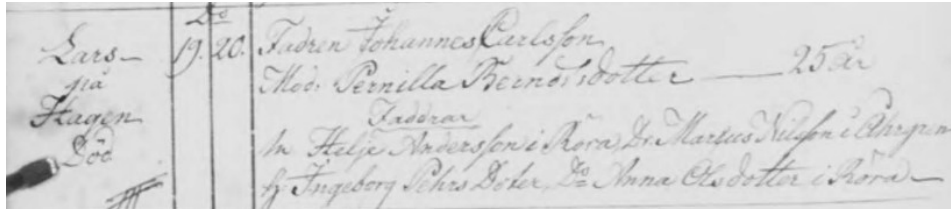 Do
Lars
på
Hagen
Död
19. 20.
Fadren Johannes Carlsson
Mod: Pernilla Berndtsdotter — 25 år
Faddrar
M Helje Andersson i Röra, Do Martus Nilsson i
hj Ingeborg Pehrs Doter, Do Anna Olsdotter i Röra —